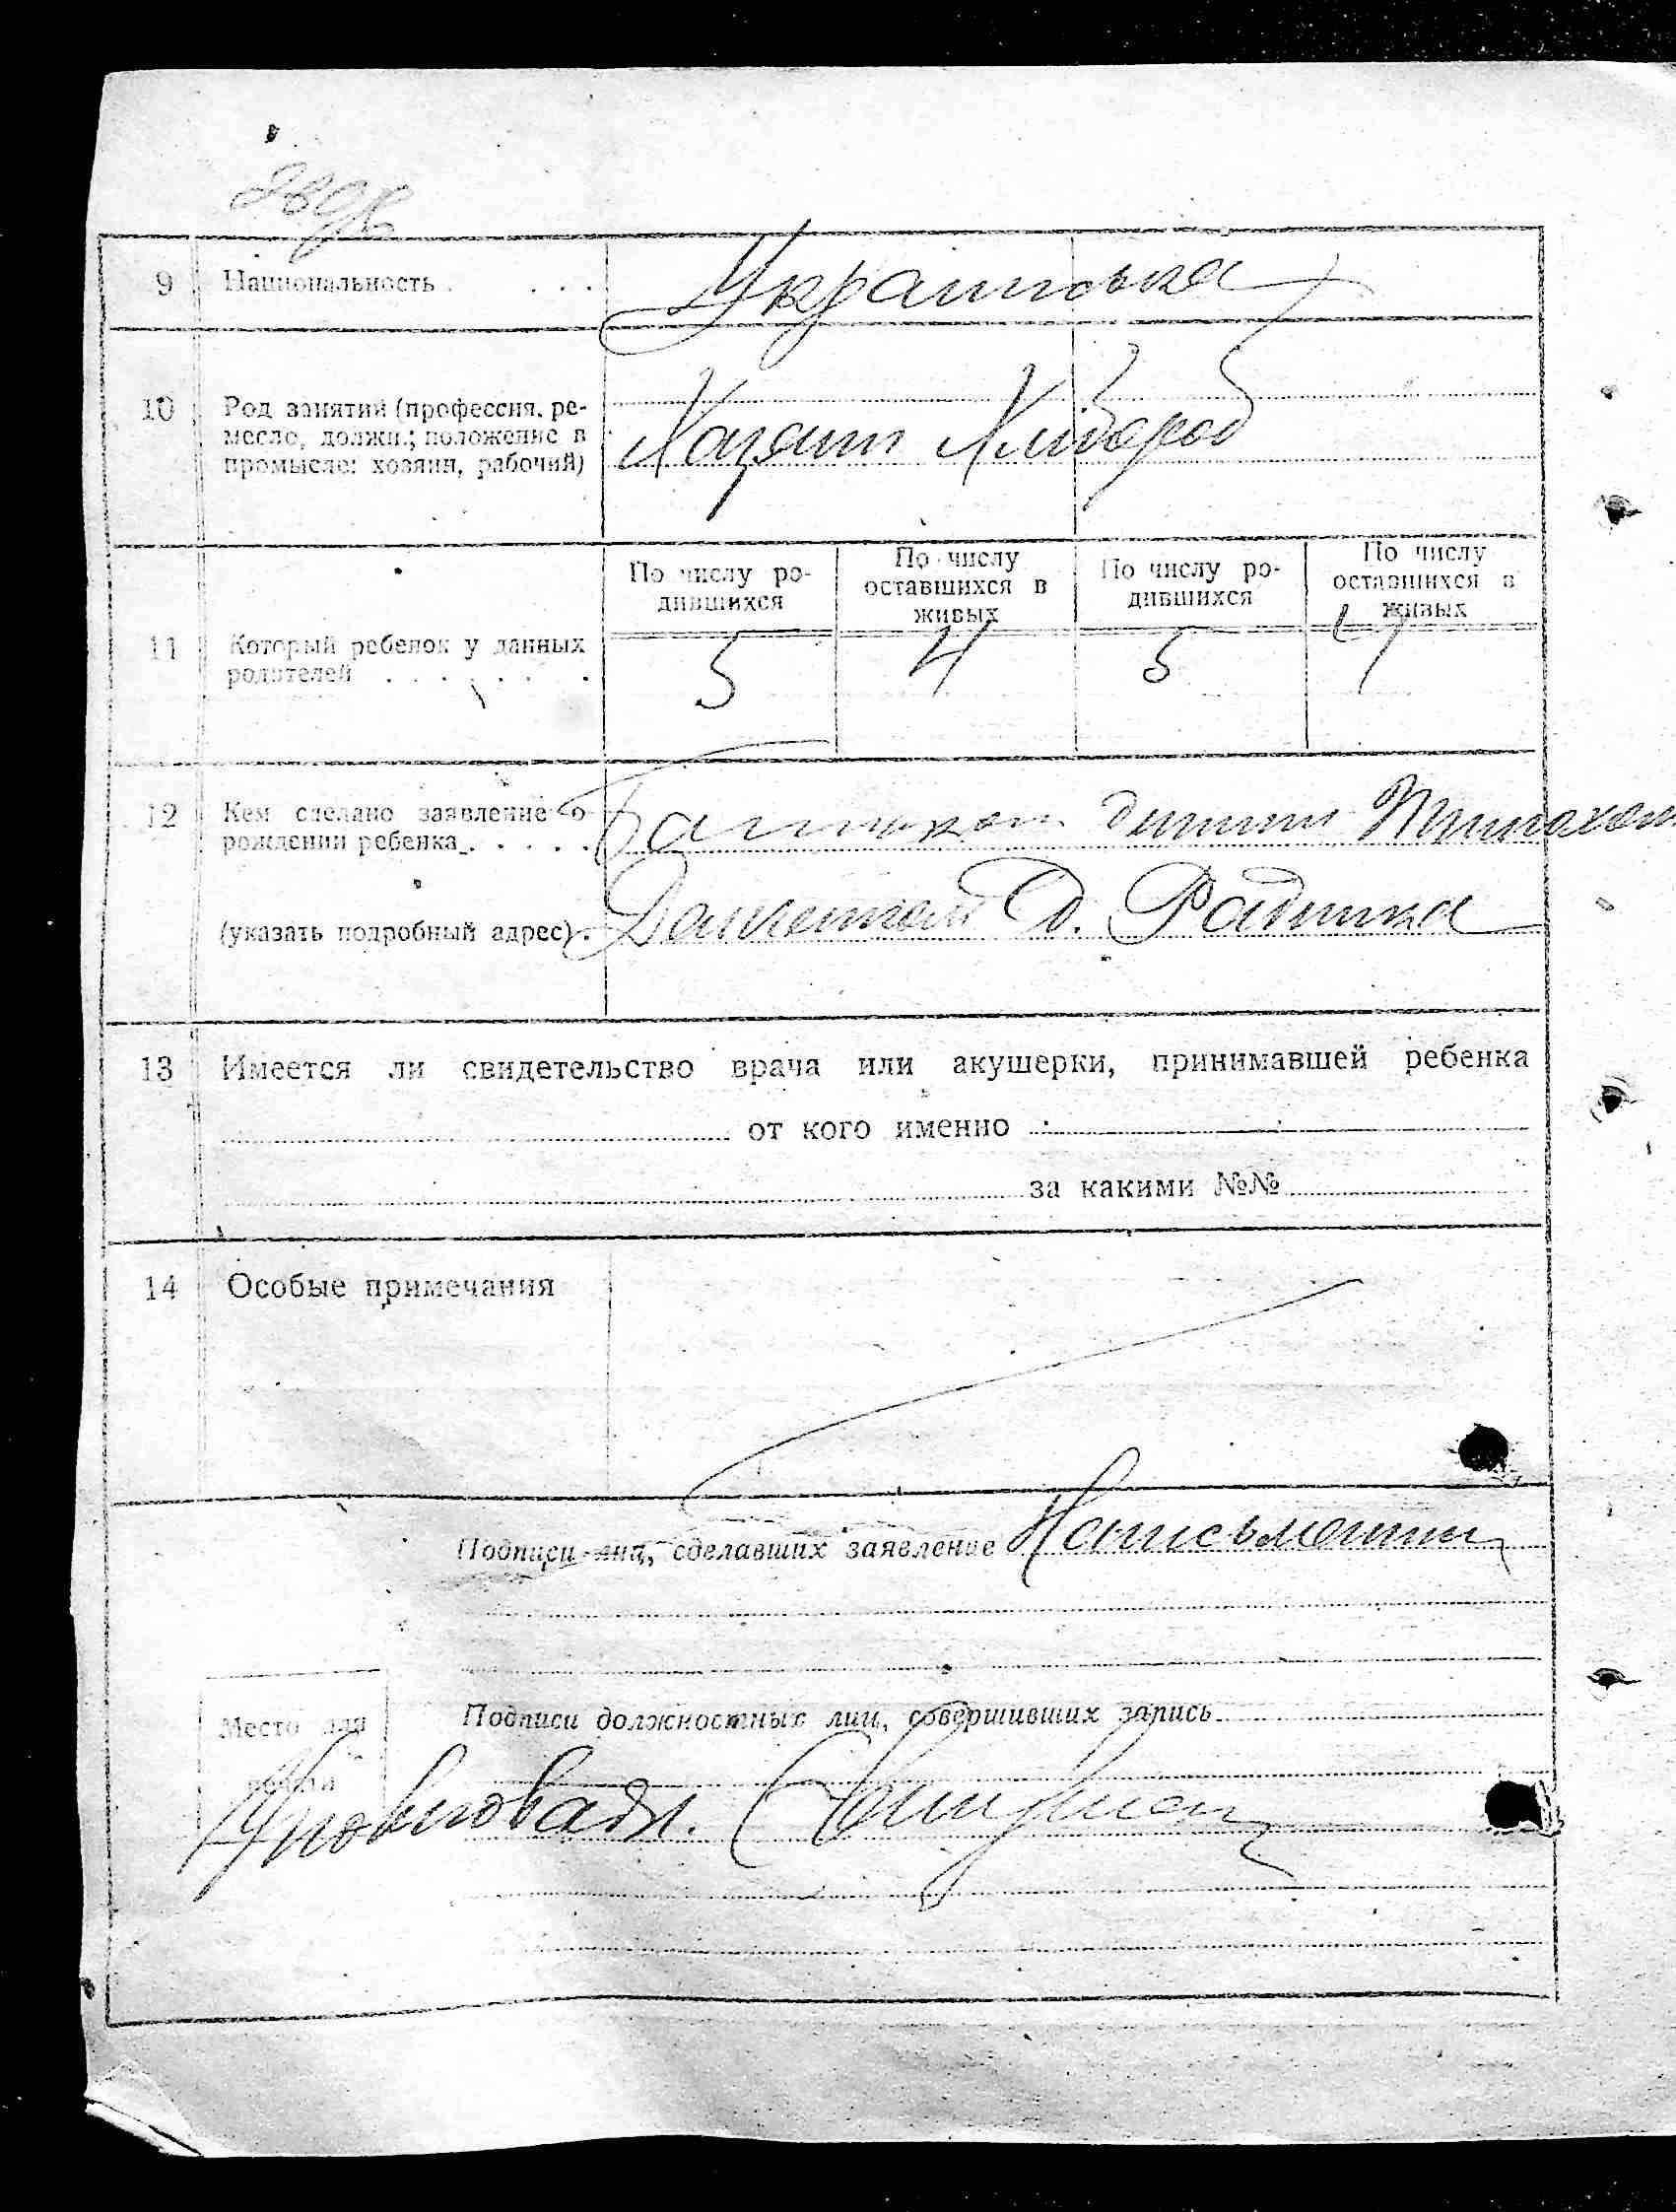 9 Национальность . . . . Украинська
10 Род занятий (профессия, ре-
месло, должн.; положение в
промысле: хозяин, рабочий)
Хазяин Хлибороб
По числу ро-
дившихся
По числу
оставшихся в
живых
По числу ро-
дившихся
По числу
оставшихся в
живых
11 Который ребенок у данных
родителей . . . . . . .
5 4 5 4
12 Кем сделано заявление о
рождении ребенка . . . . .
Батьком
(указать подробный адрес) .
Д. Радивка
13 Имеется ли свидетельство врача или акушерки, принимавшей ребенка
от кого именно
за какими №№
14 Особые примечания
Подписи лиц, сделавших заявление Неписьменни
Подписи должностных лиц, совершивших запись
Место для
печати
Уповноваж.